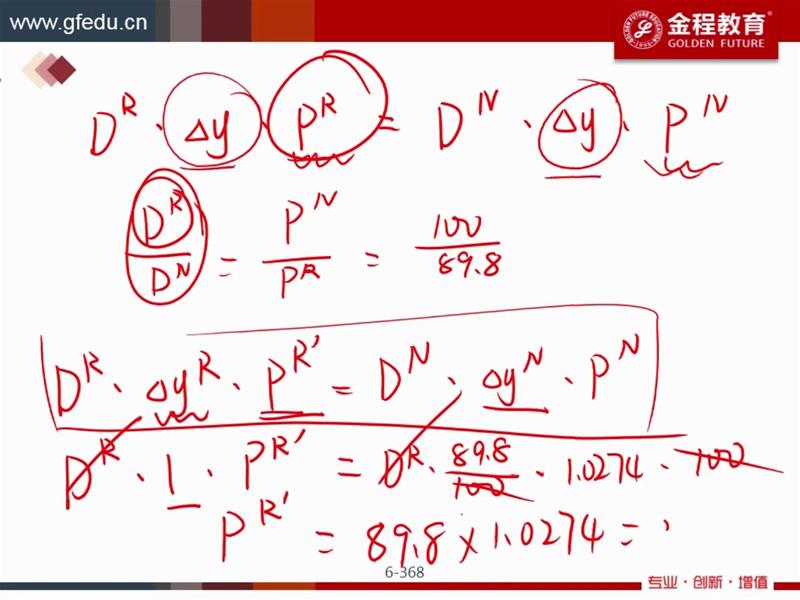 www.gfedu.cn
金程教育
GOLDEN FUTURE
D^R · Δy · P^R = D^N · Δy · P^N
D^R / D^N = P^N / P^R = 100 / 89.8
D^R · Δy^R · P^R' = D^N · Δy^N · P^N
D^R · 1 · P^R' = D^R · 89.8/100 · 1.0274 · 100
P^R' = 89.8 × 1.0274 =
6-368
专业·创新·增值